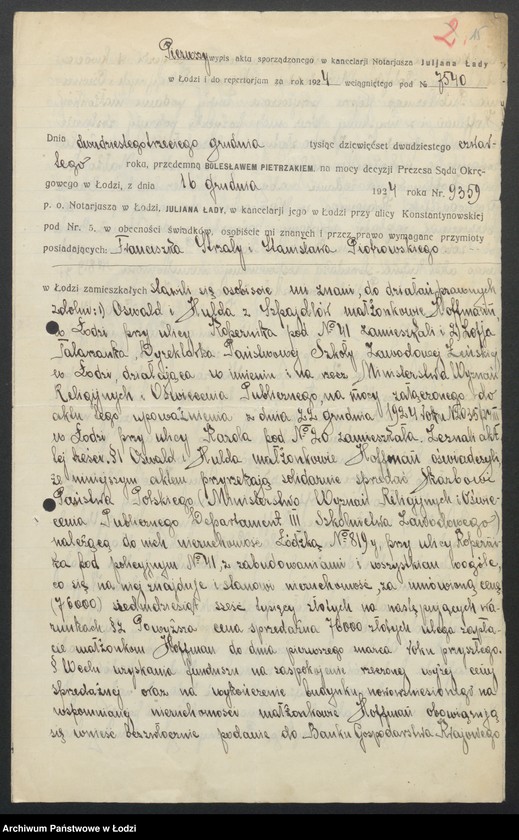 2.
Pierwszy wypis aktu sporządzonego w kancelarji Notarjusza Juljana Łady
w Łodzi i do repertorjum za rok 1924 wciągniętego pod № 7540
Dnia dwudziestegotrzeciego grudnia tysiąc dziewięćset dwudziestego czwar-
tego roku, przedemną BOLESŁAWEM PIETRZAKIEM, na mocy decyzji Prezesa Sądu Okrę-
gowego w Łodzi, z dnia 16 grudnia 1924 roku Nr. 9359
p. o. Notarjusza w Łodzi, JULJANA ŁADY, w kancelarji jego w Łodzi przy ulicy Konstantynowskiej
pod Nr. 5, w obecności świadków, osobiście mi znanych i przez prawo wymagane przymioty
posiadających: Franciszka Strzały i Stanisława Piotrowskiego
w Łodzi zamieszkałych stawili się osobiście mi znani, do działań prawnych
zdolni: 1) Oswald i Hulda z Szpajdlów małżonkowie Hoffmann,
w Łodzi przy ulicy Kopernika pod № 41 zamieszkali i 2) Zofja
Dyrektorka Państwowej Szkoły Zawodowej Żeńskiej
w Łodzi, działająca w imieniu i na rzecz Ministerstwa Wyznań
Religijnych i Oświecenia Publicznego, na mocy załączonego do
aktu tego upoważnienia z dnia 22 grudnia 1924 roku
w Łodzi przy ulicy Karola pod № 20 zamieszkała. Zeznali akt
tej treści: § 1 Oswald i Hulda małżonkowie Hoffman oświadczyli,
że niniejszym aktem przyrzekają solidarnie sprzedać Skarbowi
Państwa Polskiego (Ministerstwo Wyznań Religijnych i Oświe-
cenia Publicznego Departament III Szkolnictwa Zawodowego)
należącą do nich nieruchomość Łódzką № 819 y, przy ulicy Koperni-
ka pod policyjnym № 41, z zabudowaniami i wszystkiem wogóle,
co się na niej znajduje i stanowi nieruchomość, za umówioną cenę
(76000) siedmdziesiąt sześć tysięcy złotych na następujących wa-
runkach § 2 Powyższa cena sprzedażna 76000 złotych ulega zapła-
cie małżonkom Hoffman do dnia pierwszego marca roku przyszłego.
§ W celu uzyskania funduszu na zaspokojenie rzeczonej wyżej ceny
sprzedażnej oraz na wykończenie budynku nowowzniesionego na
wspomnianej nieruchomości małżonkowie Hoffman obowiązują
się wnieść bezzwłocznie podanie do Banku Gospodarstwa Krajowego
Archiwum Państwowe w Łodzi